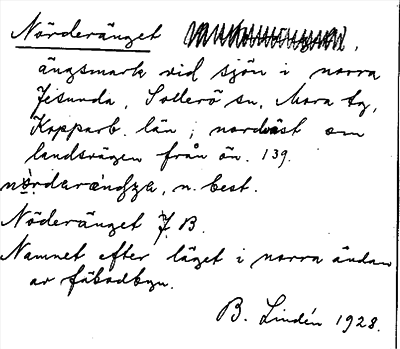 Nörderänget
ängsmark vid sjön i norra
Jesunda, Sollerö sn, Mora tg,
Kopparb. län; nordväst om
landsvägen från ön. 139.
n. best.
Nöderänget J. B.
Namnet efter läget i norra ändan
av fäbodbyn.
B. Lindén 1928.